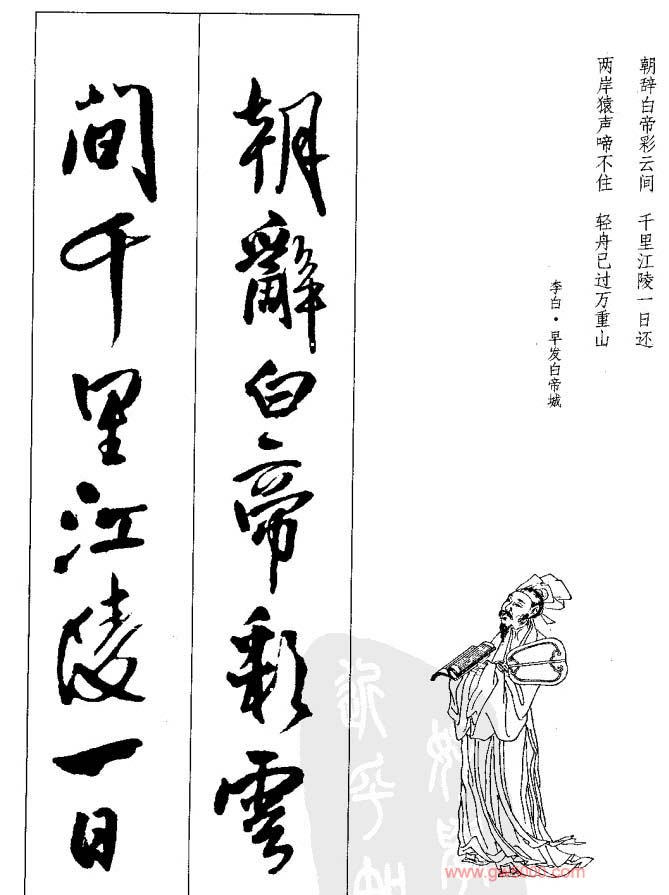 朝辞白帝彩云间　千里江陵一日还
两岸猿声啼不住　轻舟已过万重山
李白·早发白帝城
朝辭白帝彩雲
間千里江陵一日